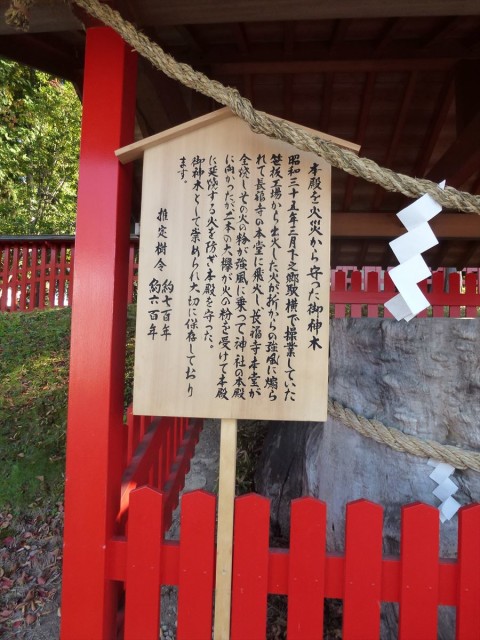 本殿を火災から守った御神木
昭和三十五年三月下之郷駅横で操業していた
笹板工場から出火した火が折からの強風に煽ら
れて長福寺の本堂に飛火し、長福寺本堂が
全焼しその火の粉が強風に乗って神社の本殿
に向かったが二本の大欅が火の粉を受けて本殿
に延焼する火を防ぎ本殿を守った。
御神木として崇められ大切に保存しており
ます。
推定樹令 約七百年
約六百年